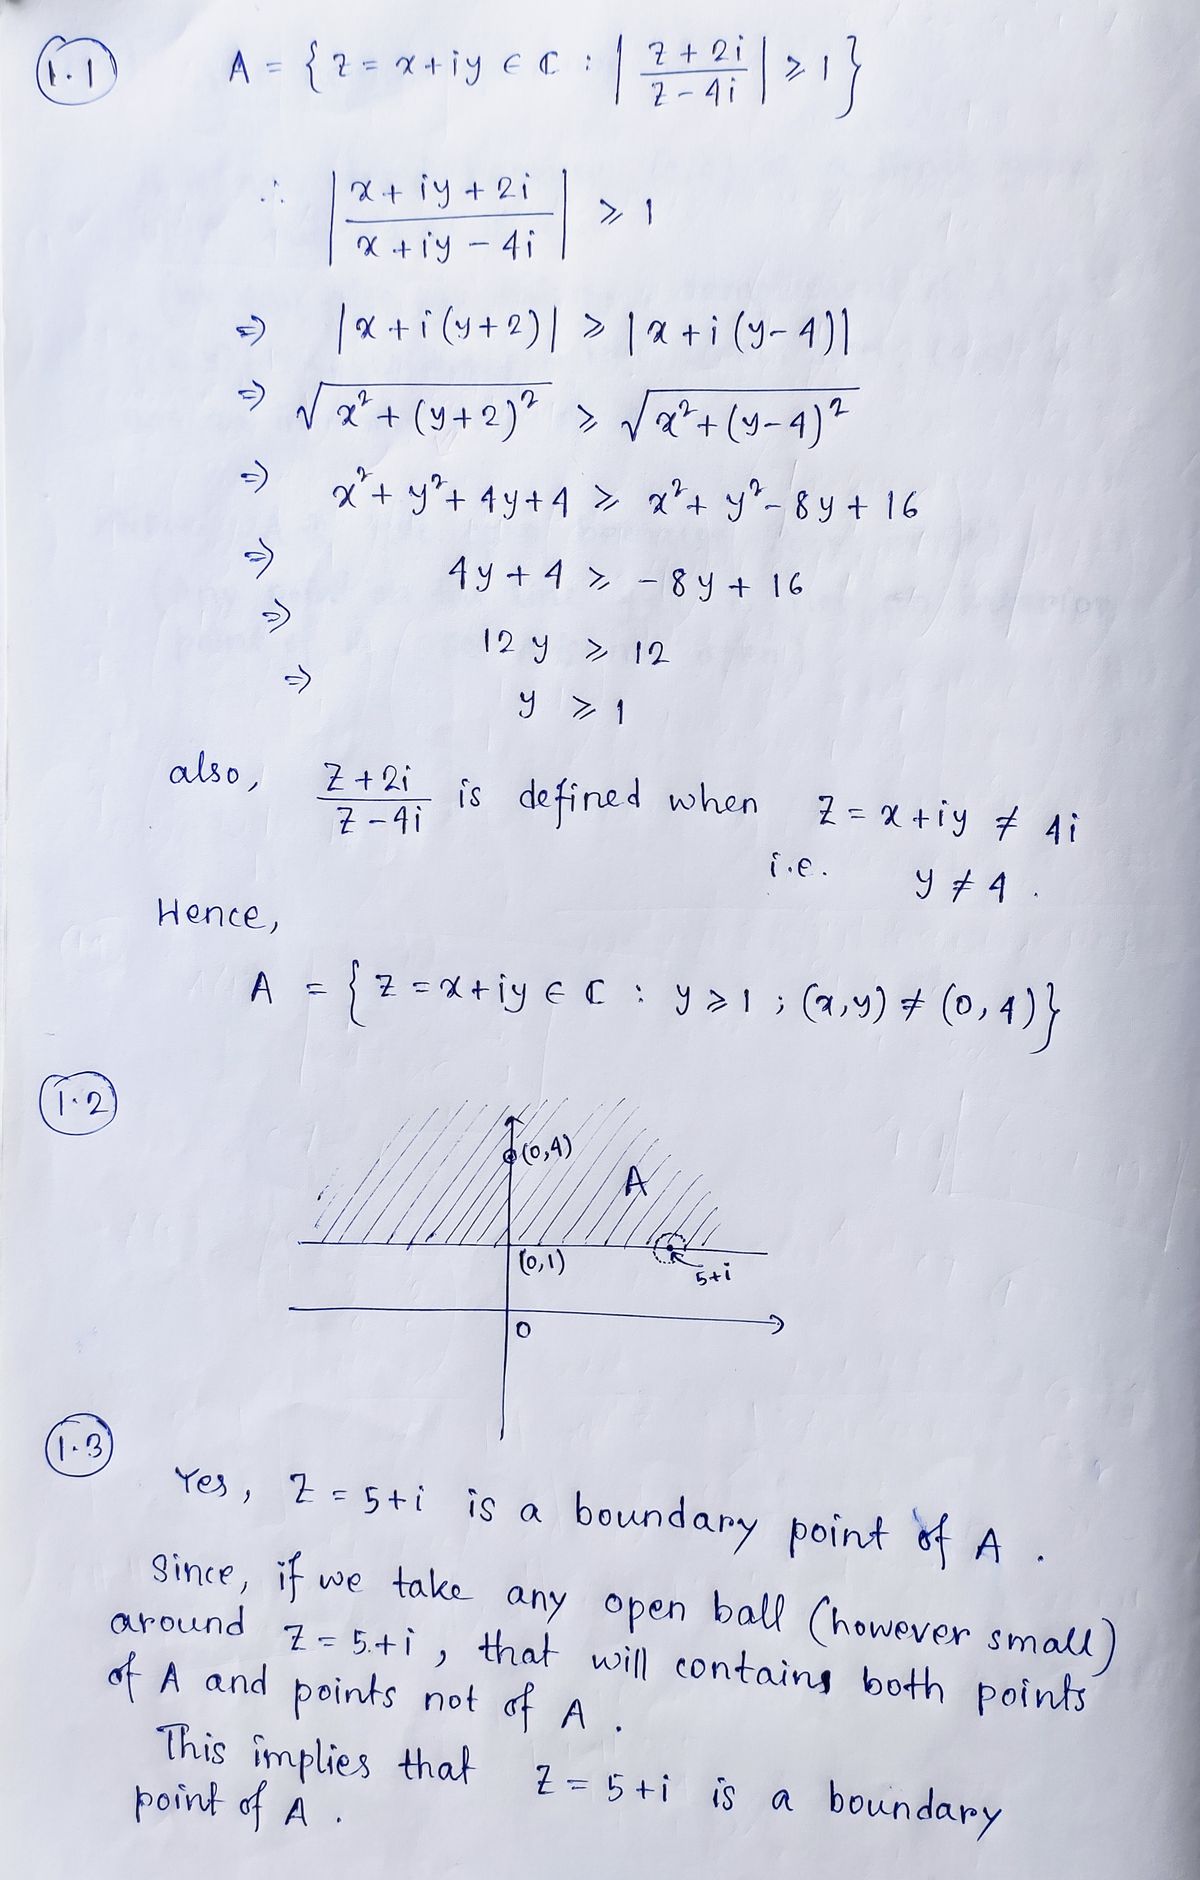 1.1 A = { z = x + iy ∈ ℂ : | (z + 2i)/(z - 4i) | ≥ 1 }
∴ | (x + iy + 2i)/(x + iy - 4i) | ≥ 1
⇒ |x + i(y+2)| ≥ |x + i(y-4)|
⇒ √(x² + (y+2)²) ≥ √(x² + (y-4)²)
⇒ x² + y² + 4y + 4 ≥ x² + y² - 8y + 16
⇒ 4y + 4 ≥ -8y + 16
⇒ 12y ≥ 12
⇒ y ≥ 1
also, (z + 2i)/(z - 4i) is defined when z = x + iy ≠ 4i
i.e. y ≠ 4.
Hence,
A = { z = x + iy ∈ ℂ : y ≥ 1 ; (x, y) ≠ (0, 4) }
1.2
(0,4)
A
(0,1)
5+i
0
1.3
Yes, z = 5+i is a boundary point of A.
Since, if we take any open ball (however small)
around z = 5+i, that will contains both points
of A and points not of A.
This implies that z = 5+i is a boundary
point of A.